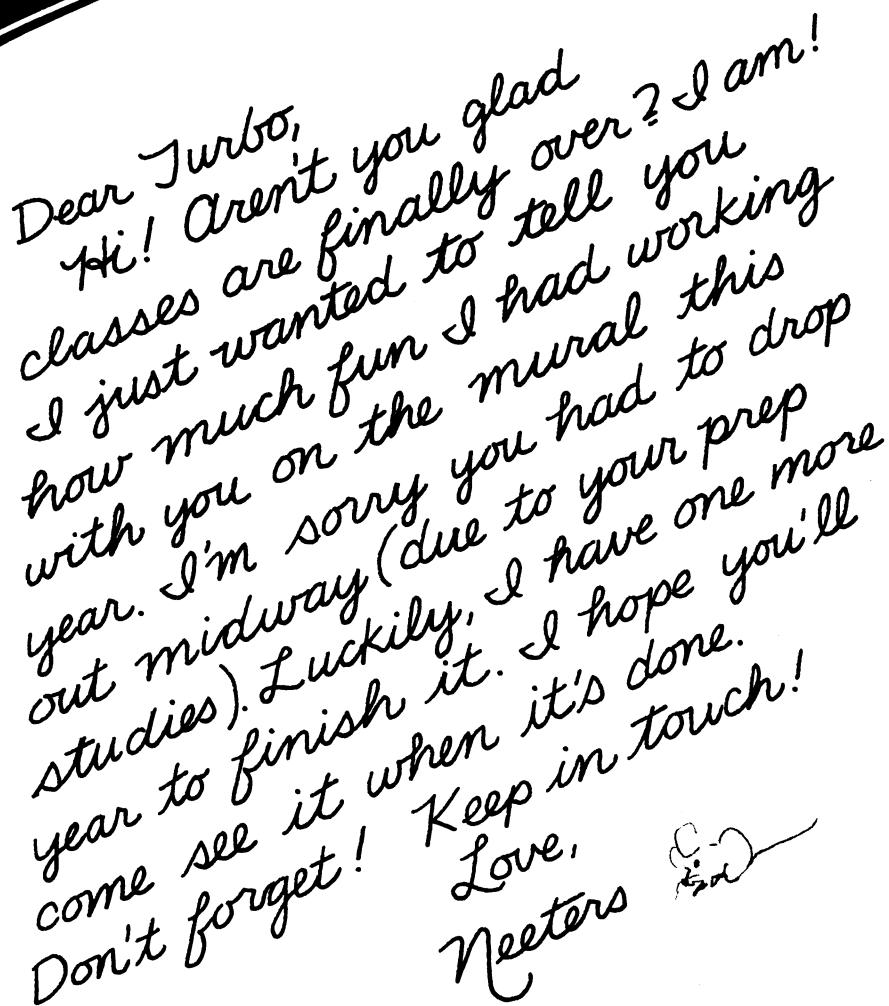 Dear Turbo,
Hi! Aren't you glad
classes are finally over? I am!
I just wanted to tell you
how much fun I had working
with you on the mural this
year. I'm sorry you had to drop
out midway (due to your prep
studies). Luckily, I have one more
year to finish it. I hope you'll
come see it when it's done.
Don't forget! Keep in touch!
Love,
Neeters